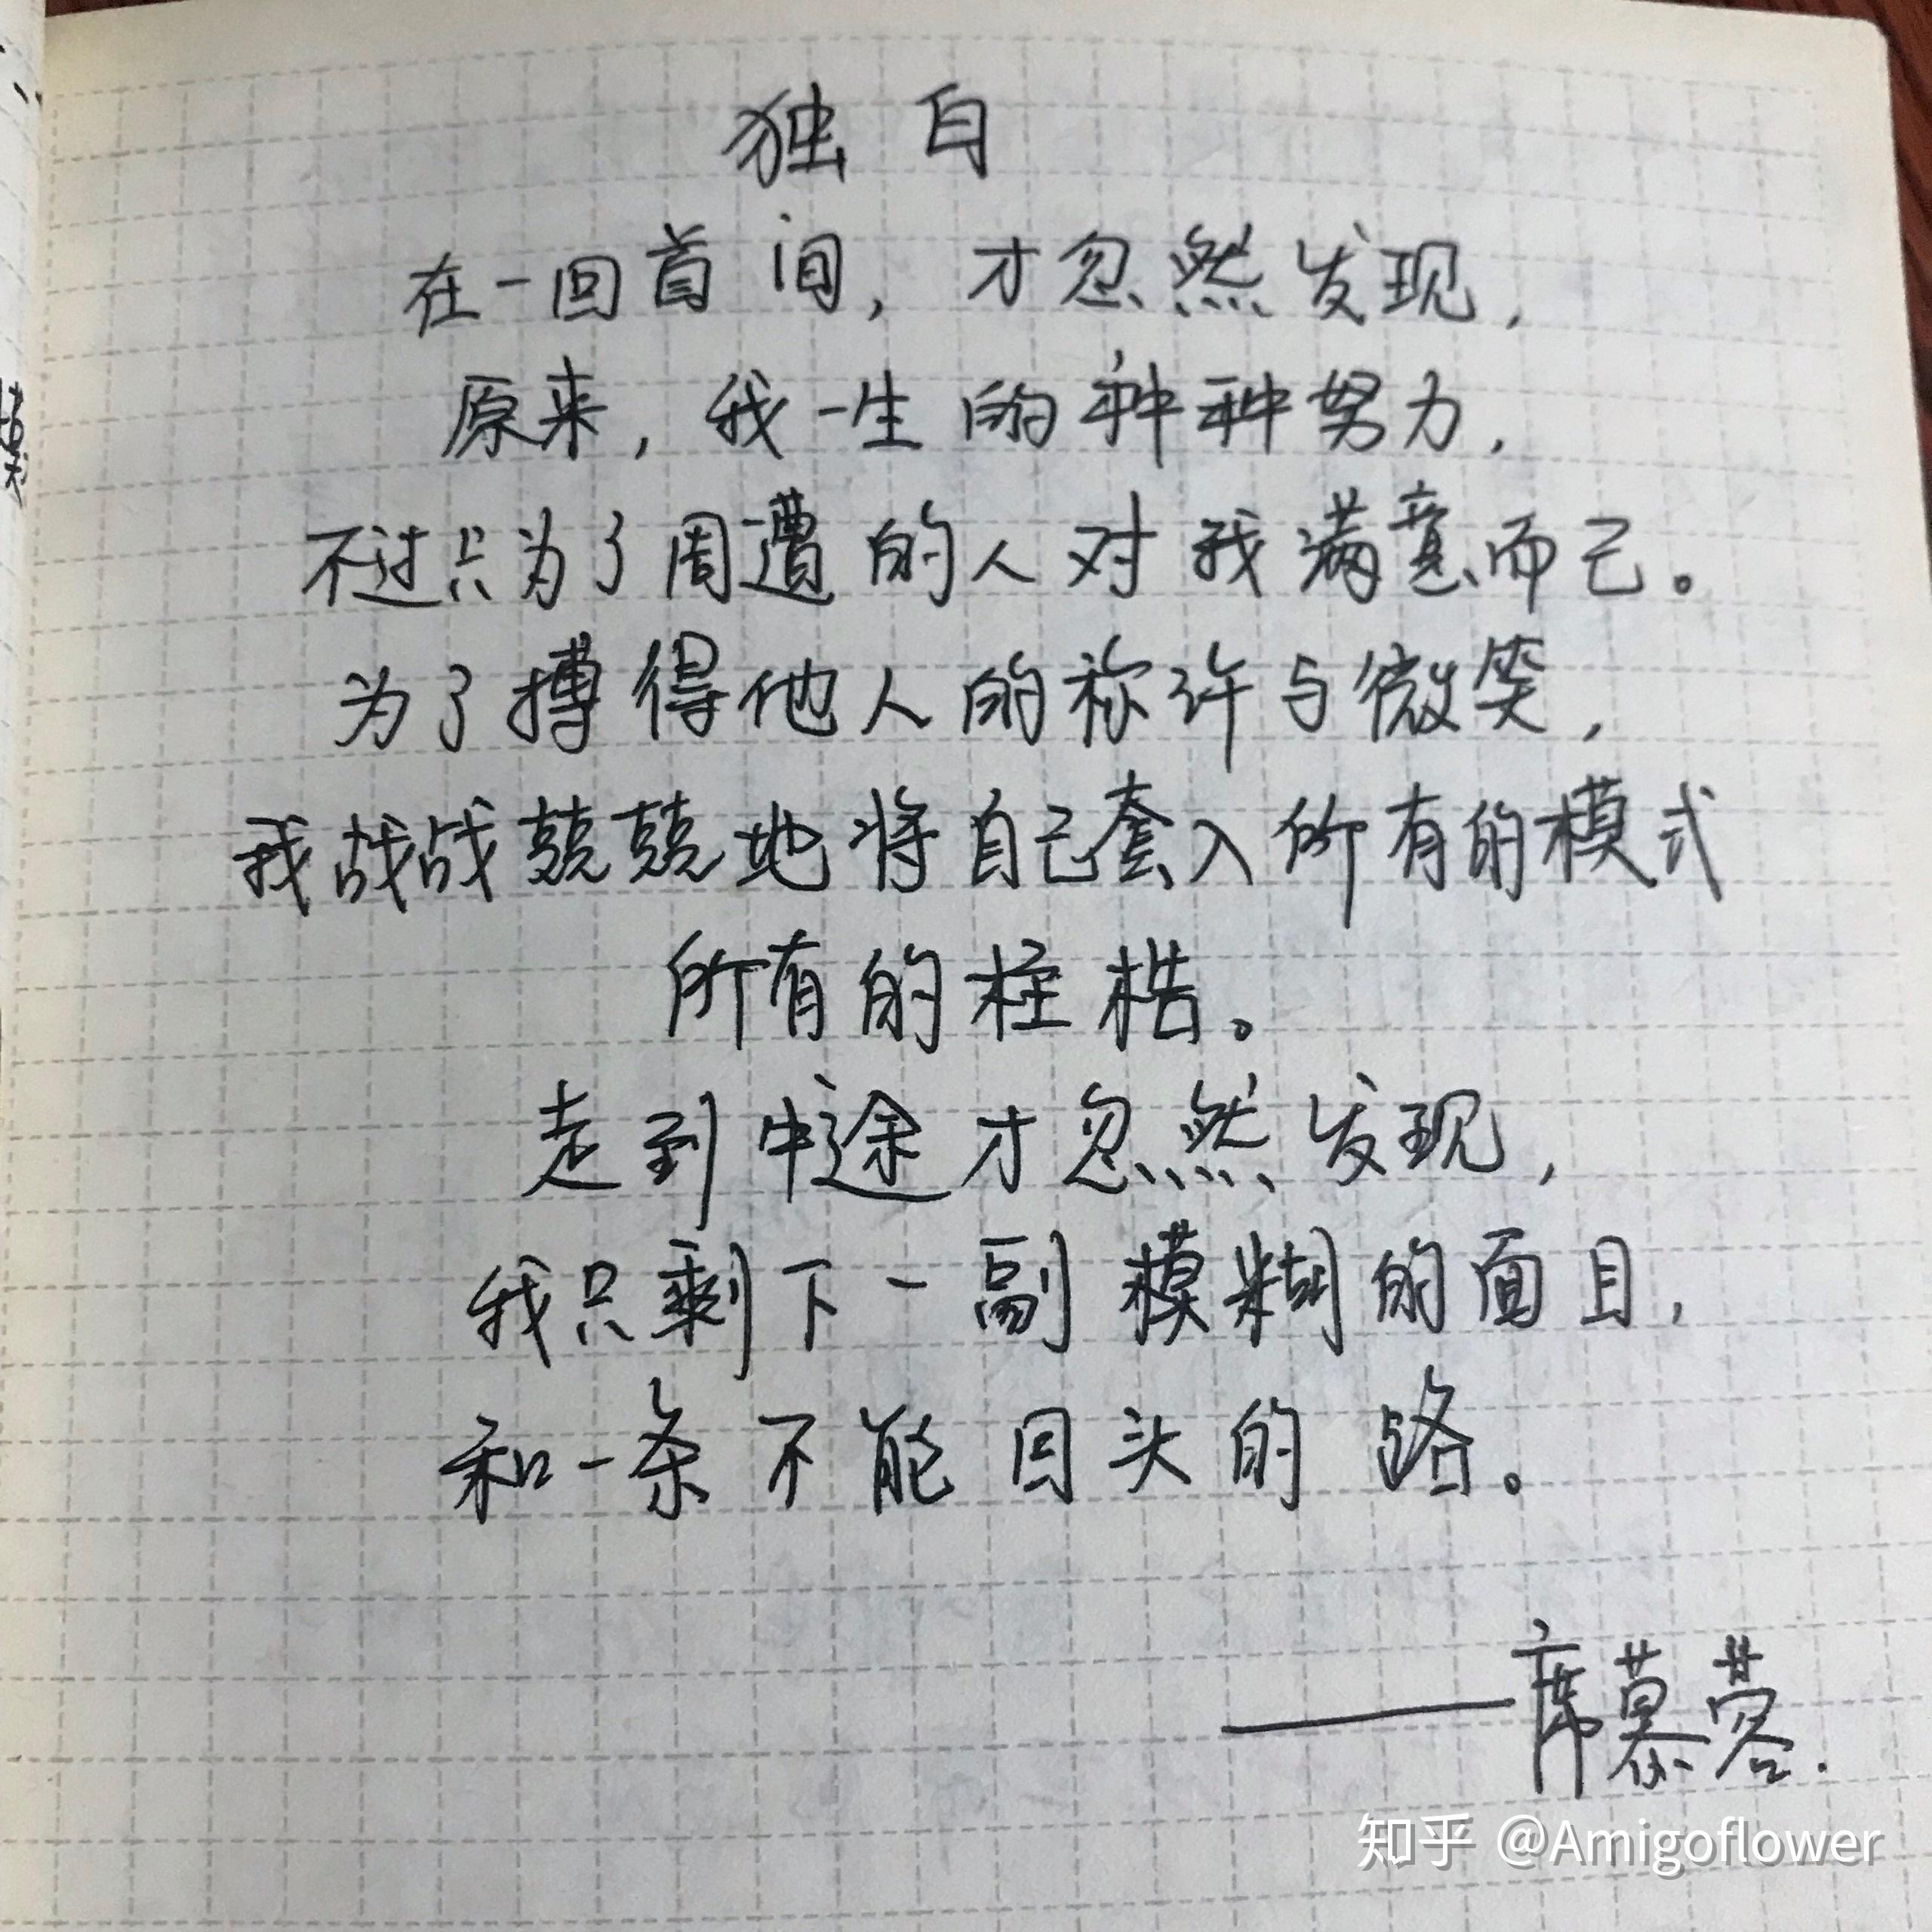 独白
在一回首间，才忽然发现，
原来，我一生的种种努力，
不过只为了周遭的人对我满意而已。
为了搏得他人的称许与微笑，
我战战兢兢地将自己套入所有的模式
所有的桎梏。
走到中途才忽然发现，
我只剩下一副模糊的面目，
和一条不能回头的路。
——席慕蓉.
知乎 @Amigoflower